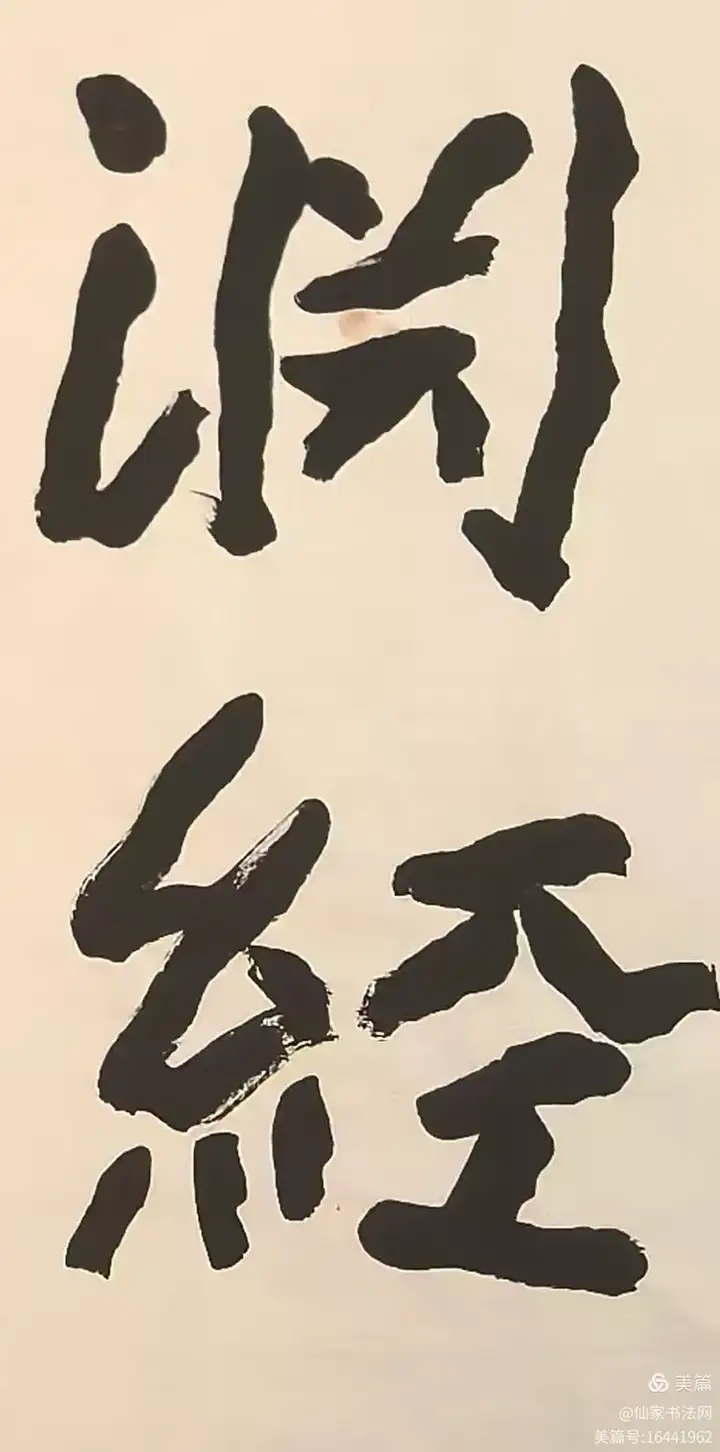 渊
經
美篇
@仙家书法网
美篇号:16441962